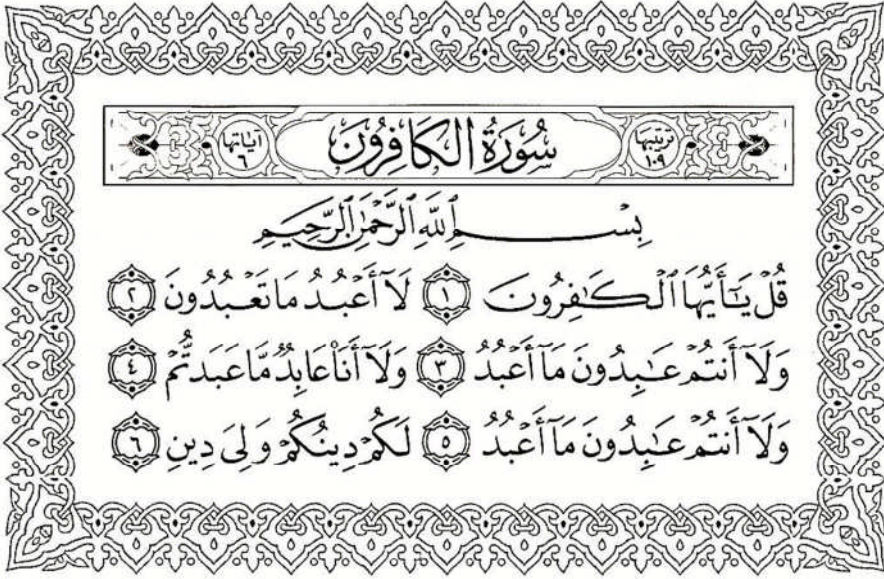 ترتيبها ١٠٩ سُورَةُ الكَافِرُونَ آيَاتُهَا ٦
بِسْمِ ٱللَّهِ ٱلرَّحْمَٰنِ ٱلرَّحِيمِ
قُلْ يَٰٓأَيُّهَا ٱلْكَٰفِرُونَ ١ لَآ أَعْبُدُ مَا تَعْبُدُونَ ٢
وَلَآ أَنتُمْ عَٰبِدُونَ مَآ أَعْبُدُ ٣ وَلَآ أَنَا۠ عَابِدٌ مَّا عَبَدتُّمْ ٤
وَلَآ أَنتُمْ عَٰبِدُونَ مَآ أَعْبُدُ ٥ لَكُمْ دِينُكُمْ وَلِيَ دِينِ ٦